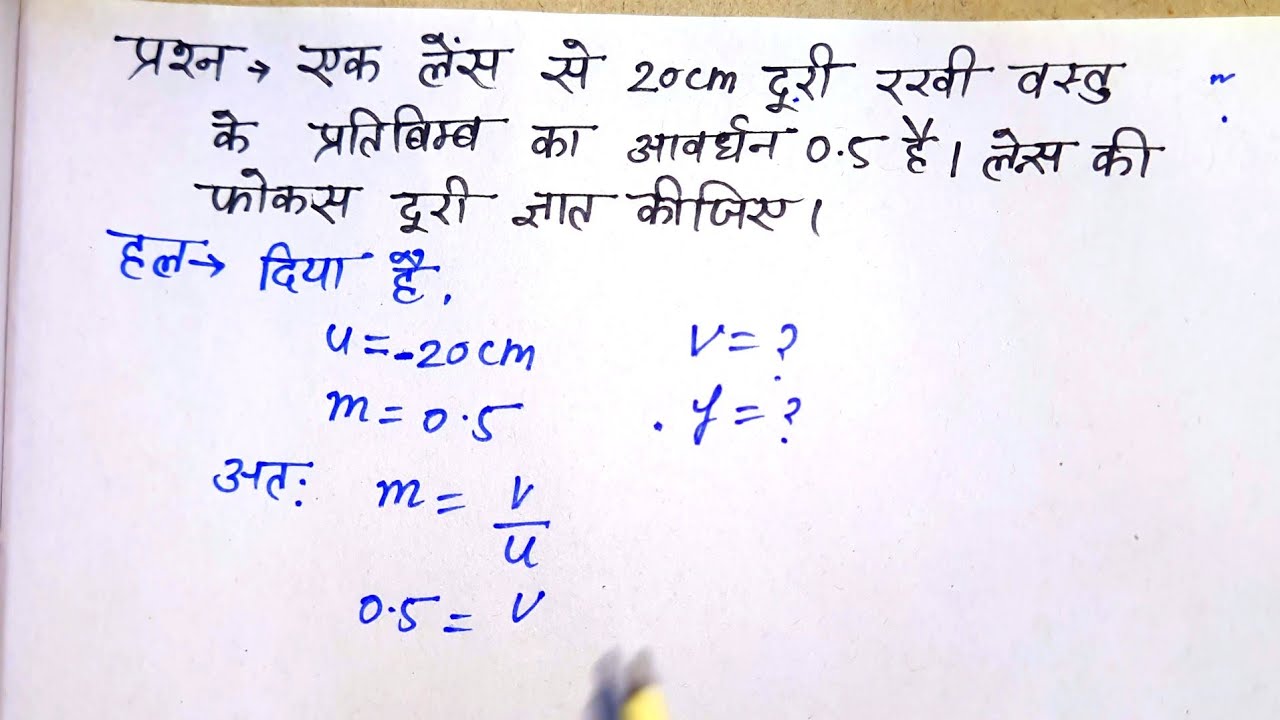 प्रश्न → एक लेंस से 20cm दूरी रखी वस्तु
के प्रतिबिम्ब का आवर्धन 0.5 है। लेन्स की
फोकस दूरी ज्ञात कीजिए।
हल → दिया है,
u = -20cm v = ?
m = 0.5 f = ?
अतः m = v/u
0.5 = v